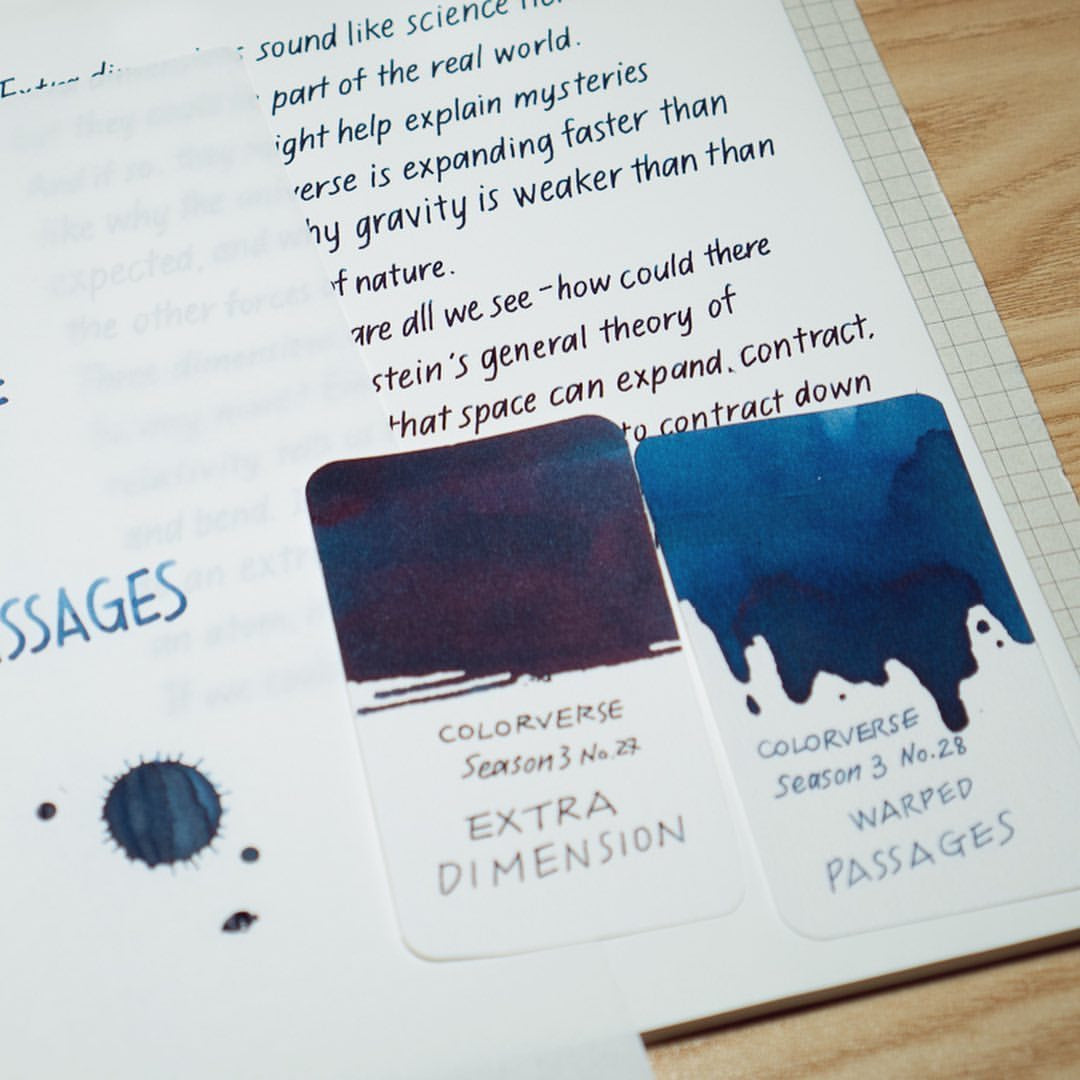 sound like science
part of the real world.
but they
ight help explain mysteries
And if so, they
erse is expanding faster than
like why the
hy gravity is weaker than than
expected, and
f nature.
the other forces
are all we see - how could there
Three dimensions
stein's general theory of
be any more?
that space can expand. contract.
relativity tells us
to contract down
and bend.
an extr
an atom,
If we could
SSAGES
COLORVERSE
Season 3 No.27
EXTRA
DIMENSION
COLORVERSE
Season 3 No.28
WARPED
PASSAGES